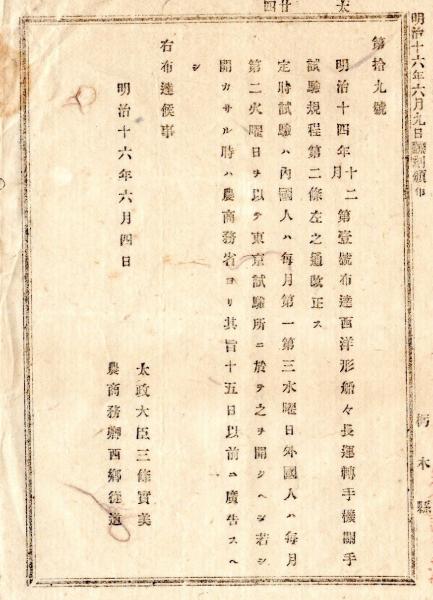 明治十六年六月九日飜刻頒布
栃木縣
太 廿四
第拾九號
明治十四年十二月第壹號布達西洋形船々長運轉手機關手
試驗規程第二條左之通改正ス
定時試驗ハ內國人ハ每月第一第三水曜日外國人ハ每月
第二火曜日ヲ以テ東京試驗所ニ於テ之ヲ開クヘシ若シ
開カサル時ハ農商務省ヨリ其旨十五日以前ニ廣告スヘ
シ
右布達候事
明治十六年六月四日
太政大臣三條實美
農商務卿西鄉從道